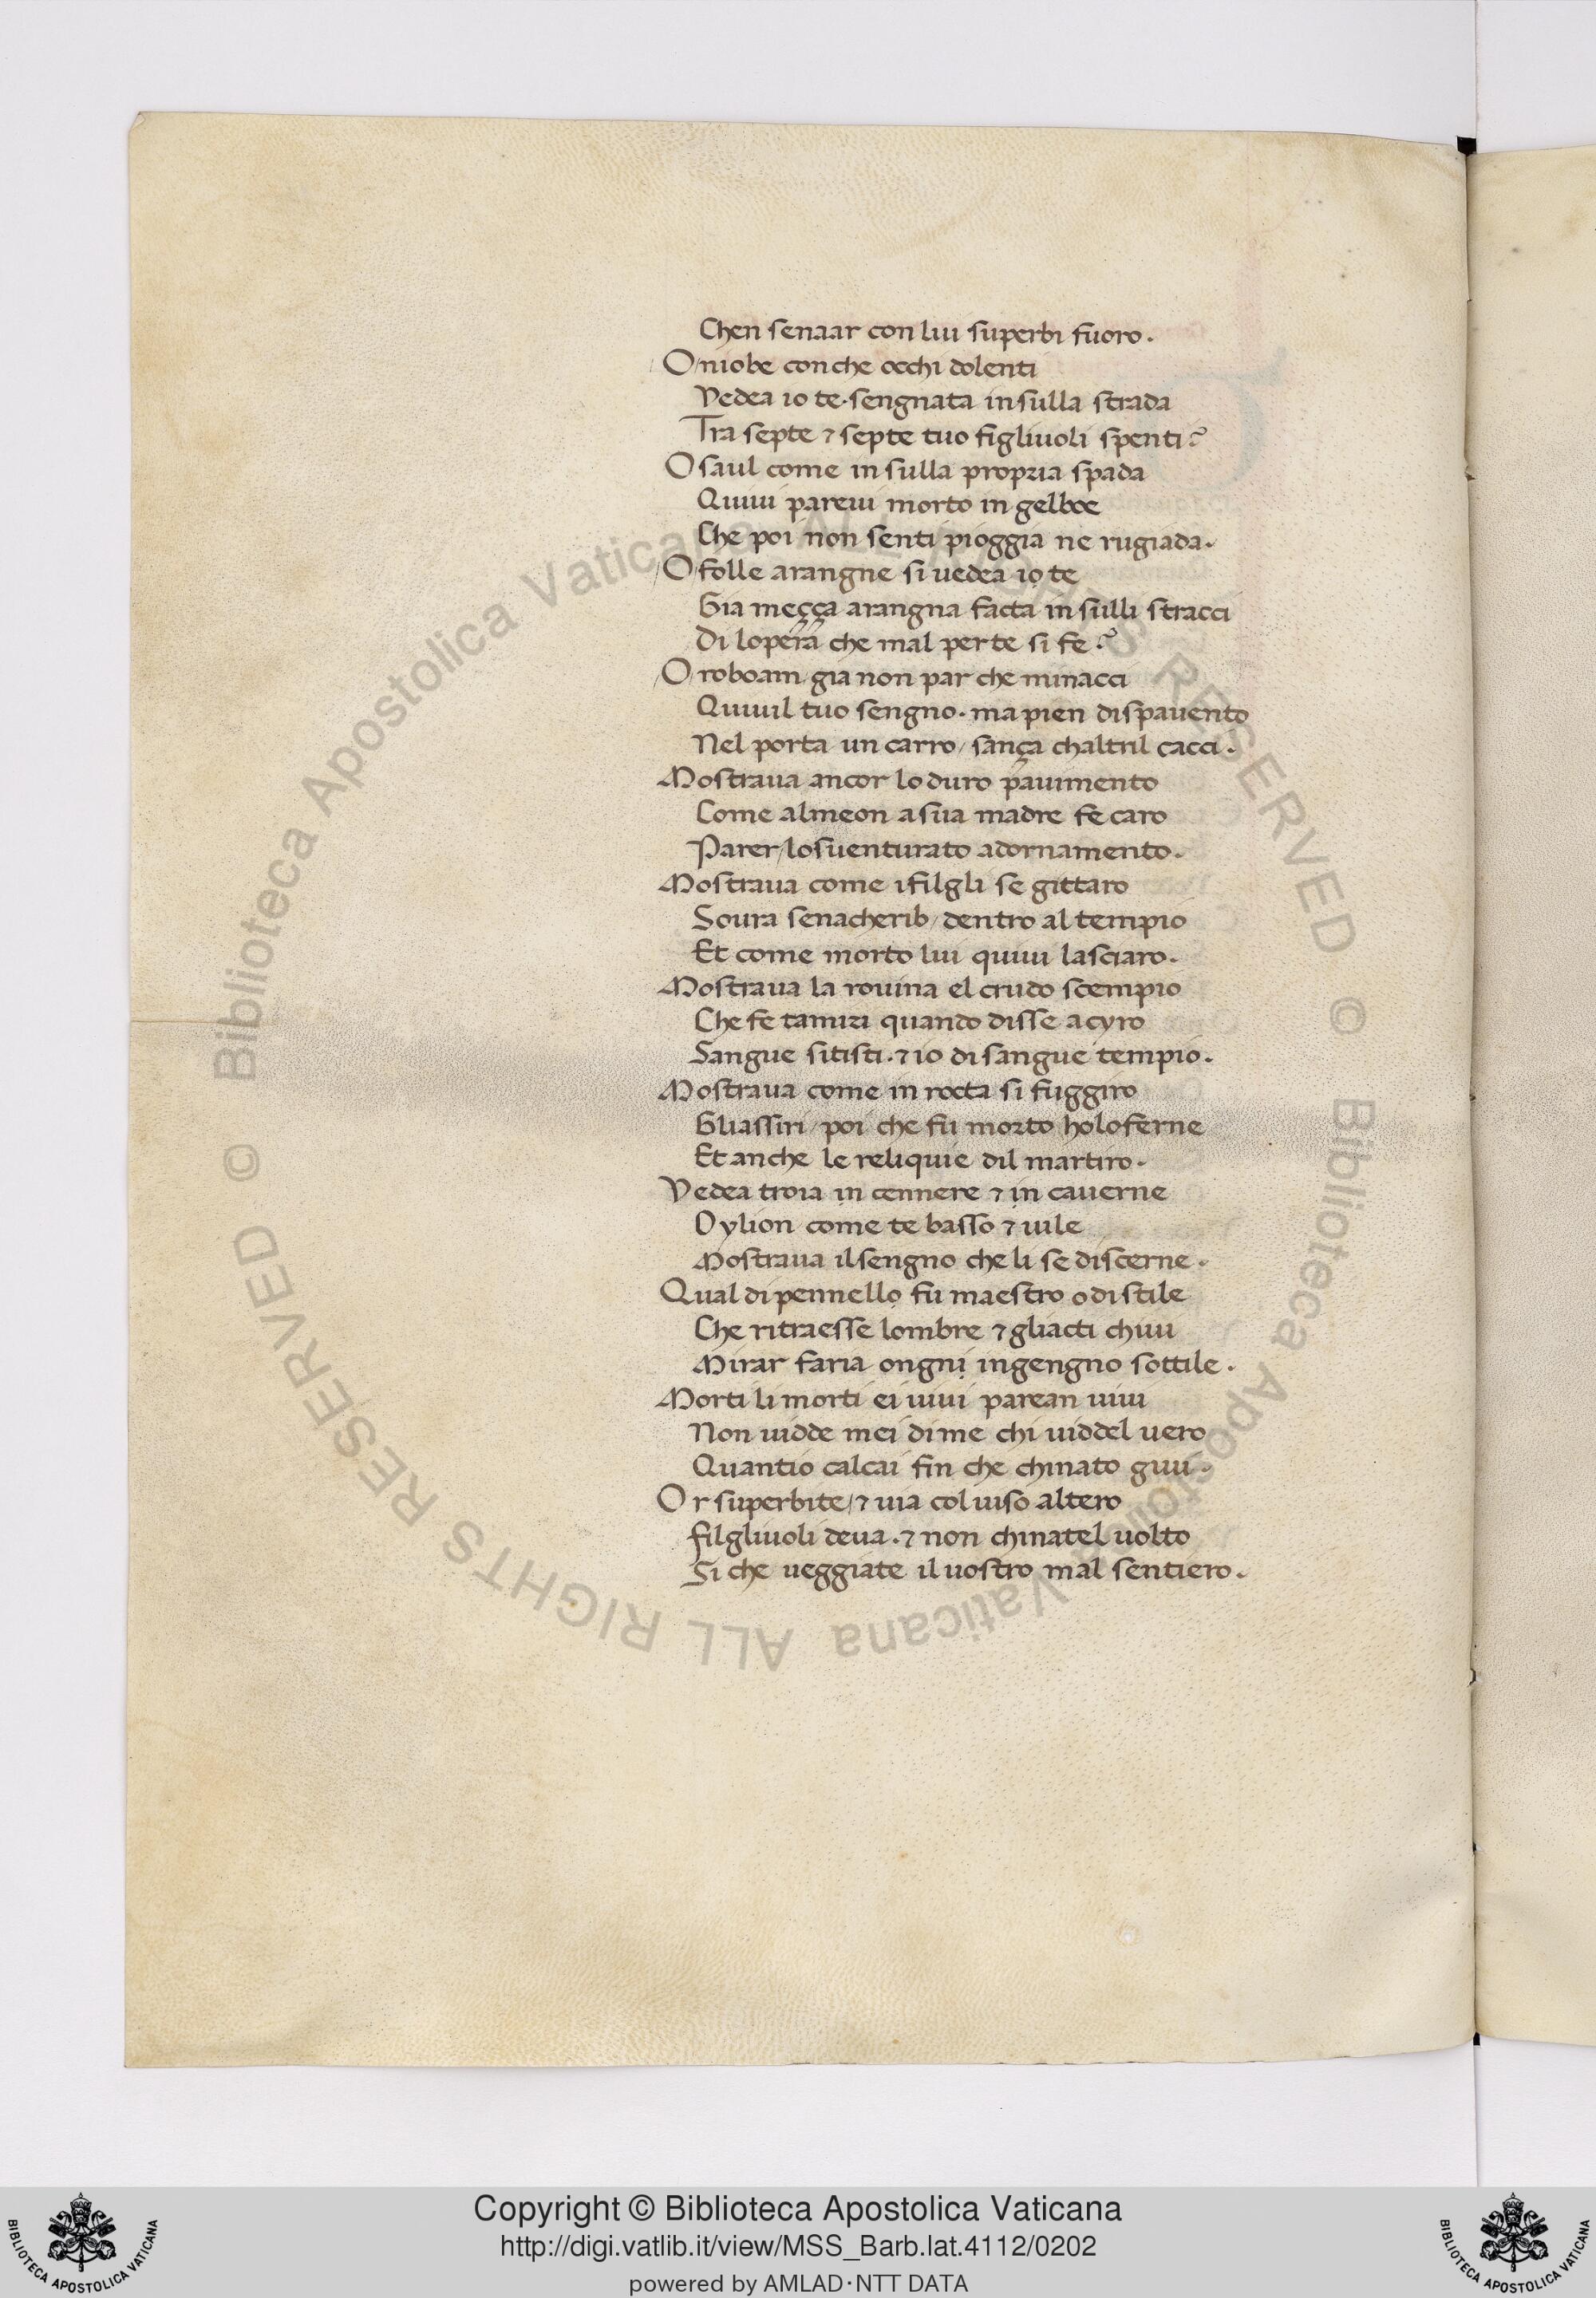 Chen senaar con lui superbi fuoro.
O niobe con che occhi dolenti
Vedea io te. sengnata in sulla strada
Tra septe ⁊ septe tuo figliuoli spenti?
O saul come in sulla propria spada
Quiui pareui morto in gelboe
Che poi non senti pioggia ne rugiada.
O folle arangne si uedea io te
Gia meçça arangna facta in sulli stracci
Di lopera che mal per te si fe?
O roboam gia non par che minacci
Quiuil tuo sengno. ma pien dispauento
Nel porta un carro / sança chaltril cacci.
Mostraua ancor lo duro pauimento
Come almeon a sua madre fe caro
Parer / lo suenturato adornamento.
Mostraua come i filgli se gittaro
Soura senacherib / dentro al tempio
Et come morto lui quiui lasciaro.
Mostraua la rouina el crudo scempio
Che fe tamiri quando disse a cyro
Sangue sitisti. ⁊ io di sangue tempio.
Mostraua come in rocta si fuggiro
Gliassiri / poi che fu morto holoferne
Et anche le reliquie dil martiro.
Vedea troia in cennere ⁊ in cauerne
O ylion come te basso ⁊ uile
Mostraua il sengno che li se discerne.
Qual di pennello fu maestro o di stile
Che ritraesse lombre ⁊ gliacti chiui
Mirar faria ongni ingengno sottile.
Morti li morti ei uiui parean uiui
Non uidde mei di me chi uiddel uero
Quantio calcai fin che chinato giui.
Or superbite / ⁊ uia col uiso altero
filgliuoli deua. ⁊ non chinatel uolto
Si che ueggiate il uostro mal sentiero.
© Biblioteca Apostolica Vaticana ALL RIGHTS RESERVED
© Biblioteca Apostolica Vaticana ALL RIGHTS RESERVED
Copyright © Biblioteca Apostolica Vaticana
http://digi.vatlib.it/view/MSS_Barb.lat.4112/0202
powered by AMLAD·NTT DATA
BIBLIOTECA APOSTOLICA VATICANA
BIBLIOTECA APOSTOLICA VATICANA